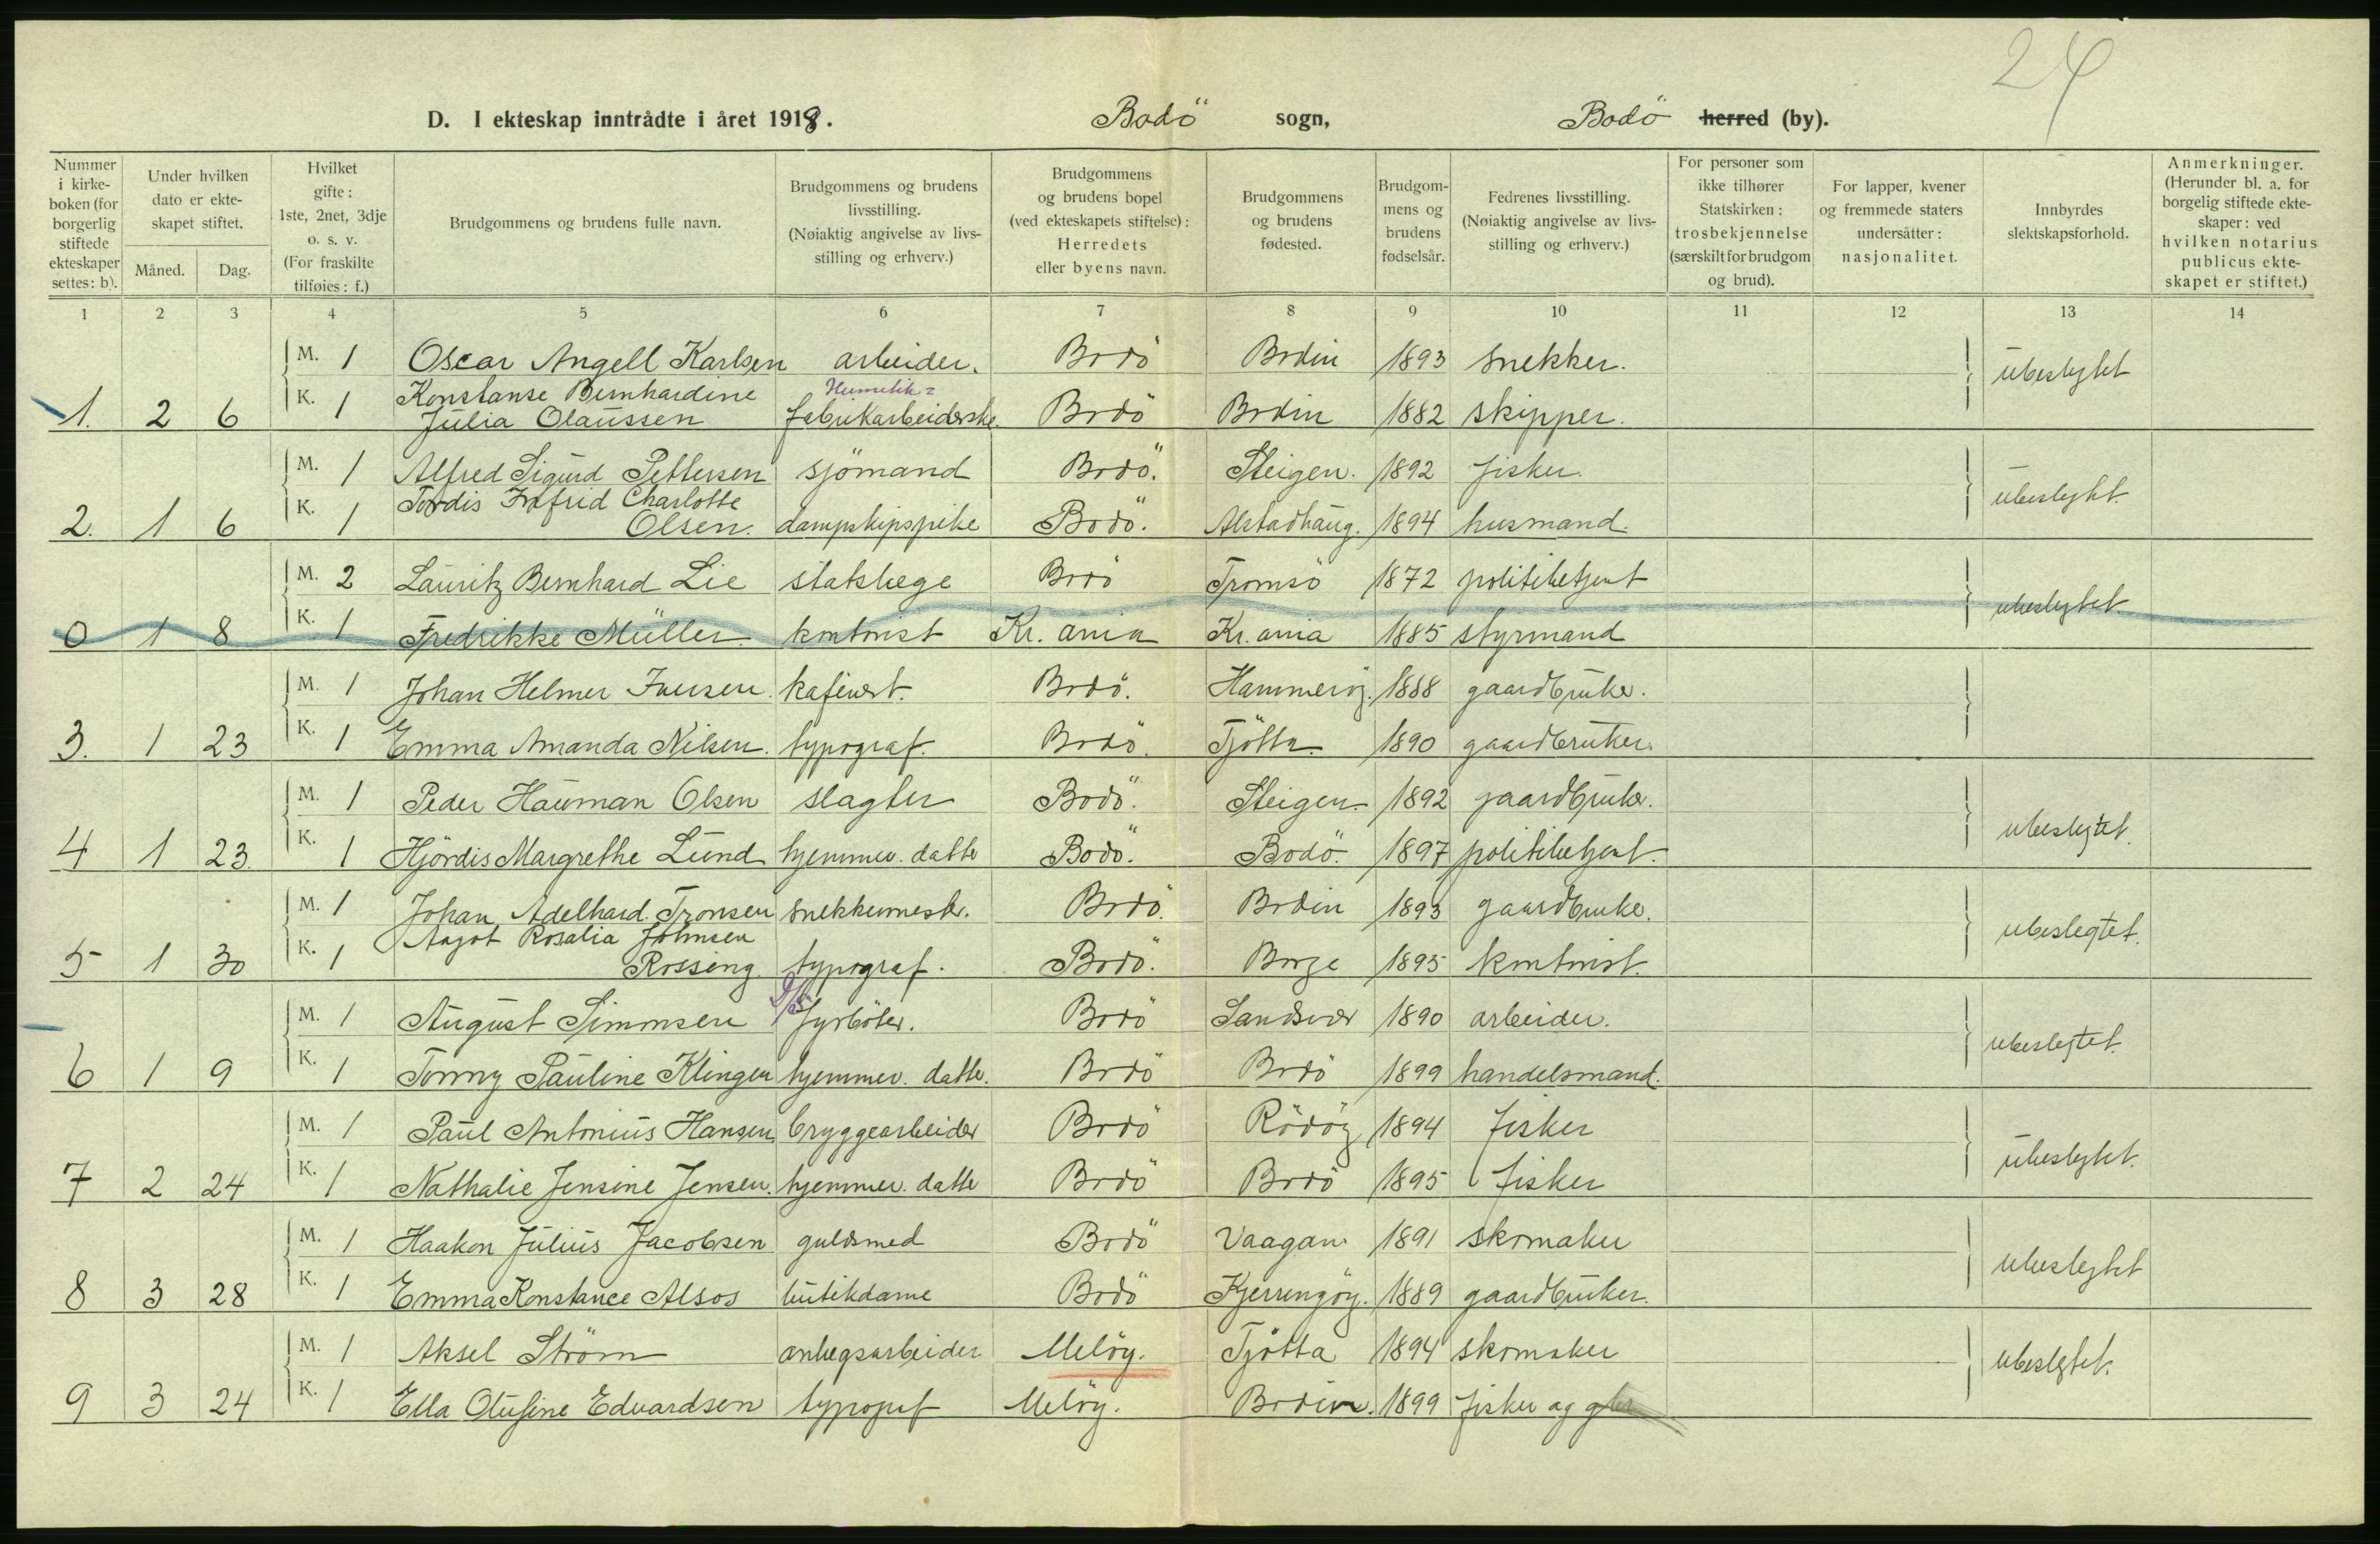 24
D. I ekteskap inntrådte i året 1918. Bodö sogn, Bodö herred (by).
Nummer i kirkeboken (for borgerlig stiftede ekteskaper settes: b).
Under hvilken dato er ekteskapet stiftet.
Måned. Dag.
Hvilket gifte: 1ste, 2net, 3dje o. s. v. (For fraskilte tilføies: f.)
Brudgommens og brudens fulle navn.
Brudgommens og brudens livsstilling. (Nøiaktig angivelse av livsstilling og erhverv.)
Brudgommens og brudens bopel (ved ekteskapets stiftelse): Herredets eller byens navn.
Brudgommens og brudens fødested.
Brudgommens og brudens fødselsår.
Fedrenes livsstilling. (Nøiaktig angivelse av livsstilling og erhverv.)
For personer som ikke tilhører Statskirken: trosbekjennelse (særskilt for brudgom og brud).
For lapper, kvener og fremmede staters undersåtter: nasjonalitet.
Innbyrdes slektskapsforhold.
Anmerkninger. (Herunder bl. a. for borgelig stiftede ekteskaper: ved hvilken notarius publicus ekteskapet er stiftet.)
1 2 3 4 5 6 7 8 9 10 11 12 13 14
M. 1 Oscar Angell Karlsen arbeider. Bodö Bodin 1893 snekker. ubeslegtet
K. Konstanse Bernhardine Hermetik=
1. 2 6 1 Julia Olaussen fabrikarbeiderske. Bodö Bodin 1882 skipper.
M. 1 Alfred Sigurd Pettersen sjömand Bodö. Steigen. 1892 fisker. ubeslegtet
K. Tordis Charlotte
2. 1 6 1 Olsen. dampskipspike Bodö. Alstadhaug. 1894 husmand.
M. 2 Lauritz Bernhard Lie statslege Bodö Tromsö 1872 politibetjent ubeslegtet
0 1 8 K. 1 Fredrikke Müller. kontorist Kr. ania Kr. ania 1885 styrmand
M. 1 Johan Helmer Iversen. kafevert. Bodö. Hammeröy. 1888 gaardbruker.
3. 1 23 K. 1 Emma Amanda Nilsen. typograf. Bodö. Tjötta. 1890 gaardbruker.
M. 1 Peder Hauman Olsen slagter Bodö. Steigen. 1892 gaardbruker. ubeslegtet.
4 1 23. K. 1 Hjördis Margrethe Lund hjemmev. datter Bodö. Bodö. 1897 politibetjent.
M. 1 Johan Adelhard Tronsen snekkermester. Bodö. Bodin 1893 gaardbruker. ubeslegtet.
K. Aagot Rosalia Johnsen
5 1 30 1 Rossing. typograf. Bodö. Borge 1895 kontorist.
M. 1 August Simonsen D/S fyrböter. Bodö Sandsvær 1890 arbeider. ubeslegtet.
6 1 9 K. 1 Tonny Pauline Klingen hjemmev. datter. Bodö Bodö 1899 handelsmand.
M. 1 Paul Antonius Hansen bryggearbeider Bodö Rödöy 1894 fisker ubeslegtet.
7 2 24 K. 1 Nathalie Jensine Jensen. hjemmev. datter Bodö Bodö 1895 fisker
M. 1 Haakon Julius Jacobsen guldsmed Bodö Vaagan 1891 skomaker ubeslegtet
8 3 28 K. 1 Emma Konstance Alsos butikdame Bodö Kjerringöy. 1889 gaardbruker.
M. 1 Aksel Ström anlegsarbeider Melöy. Tjötta 1894 skomaker ubeslegtet.
9 3 24 K. 1 Ella Olufine Edvardsen typograf Melöy. Bodin. 1899 fisker og